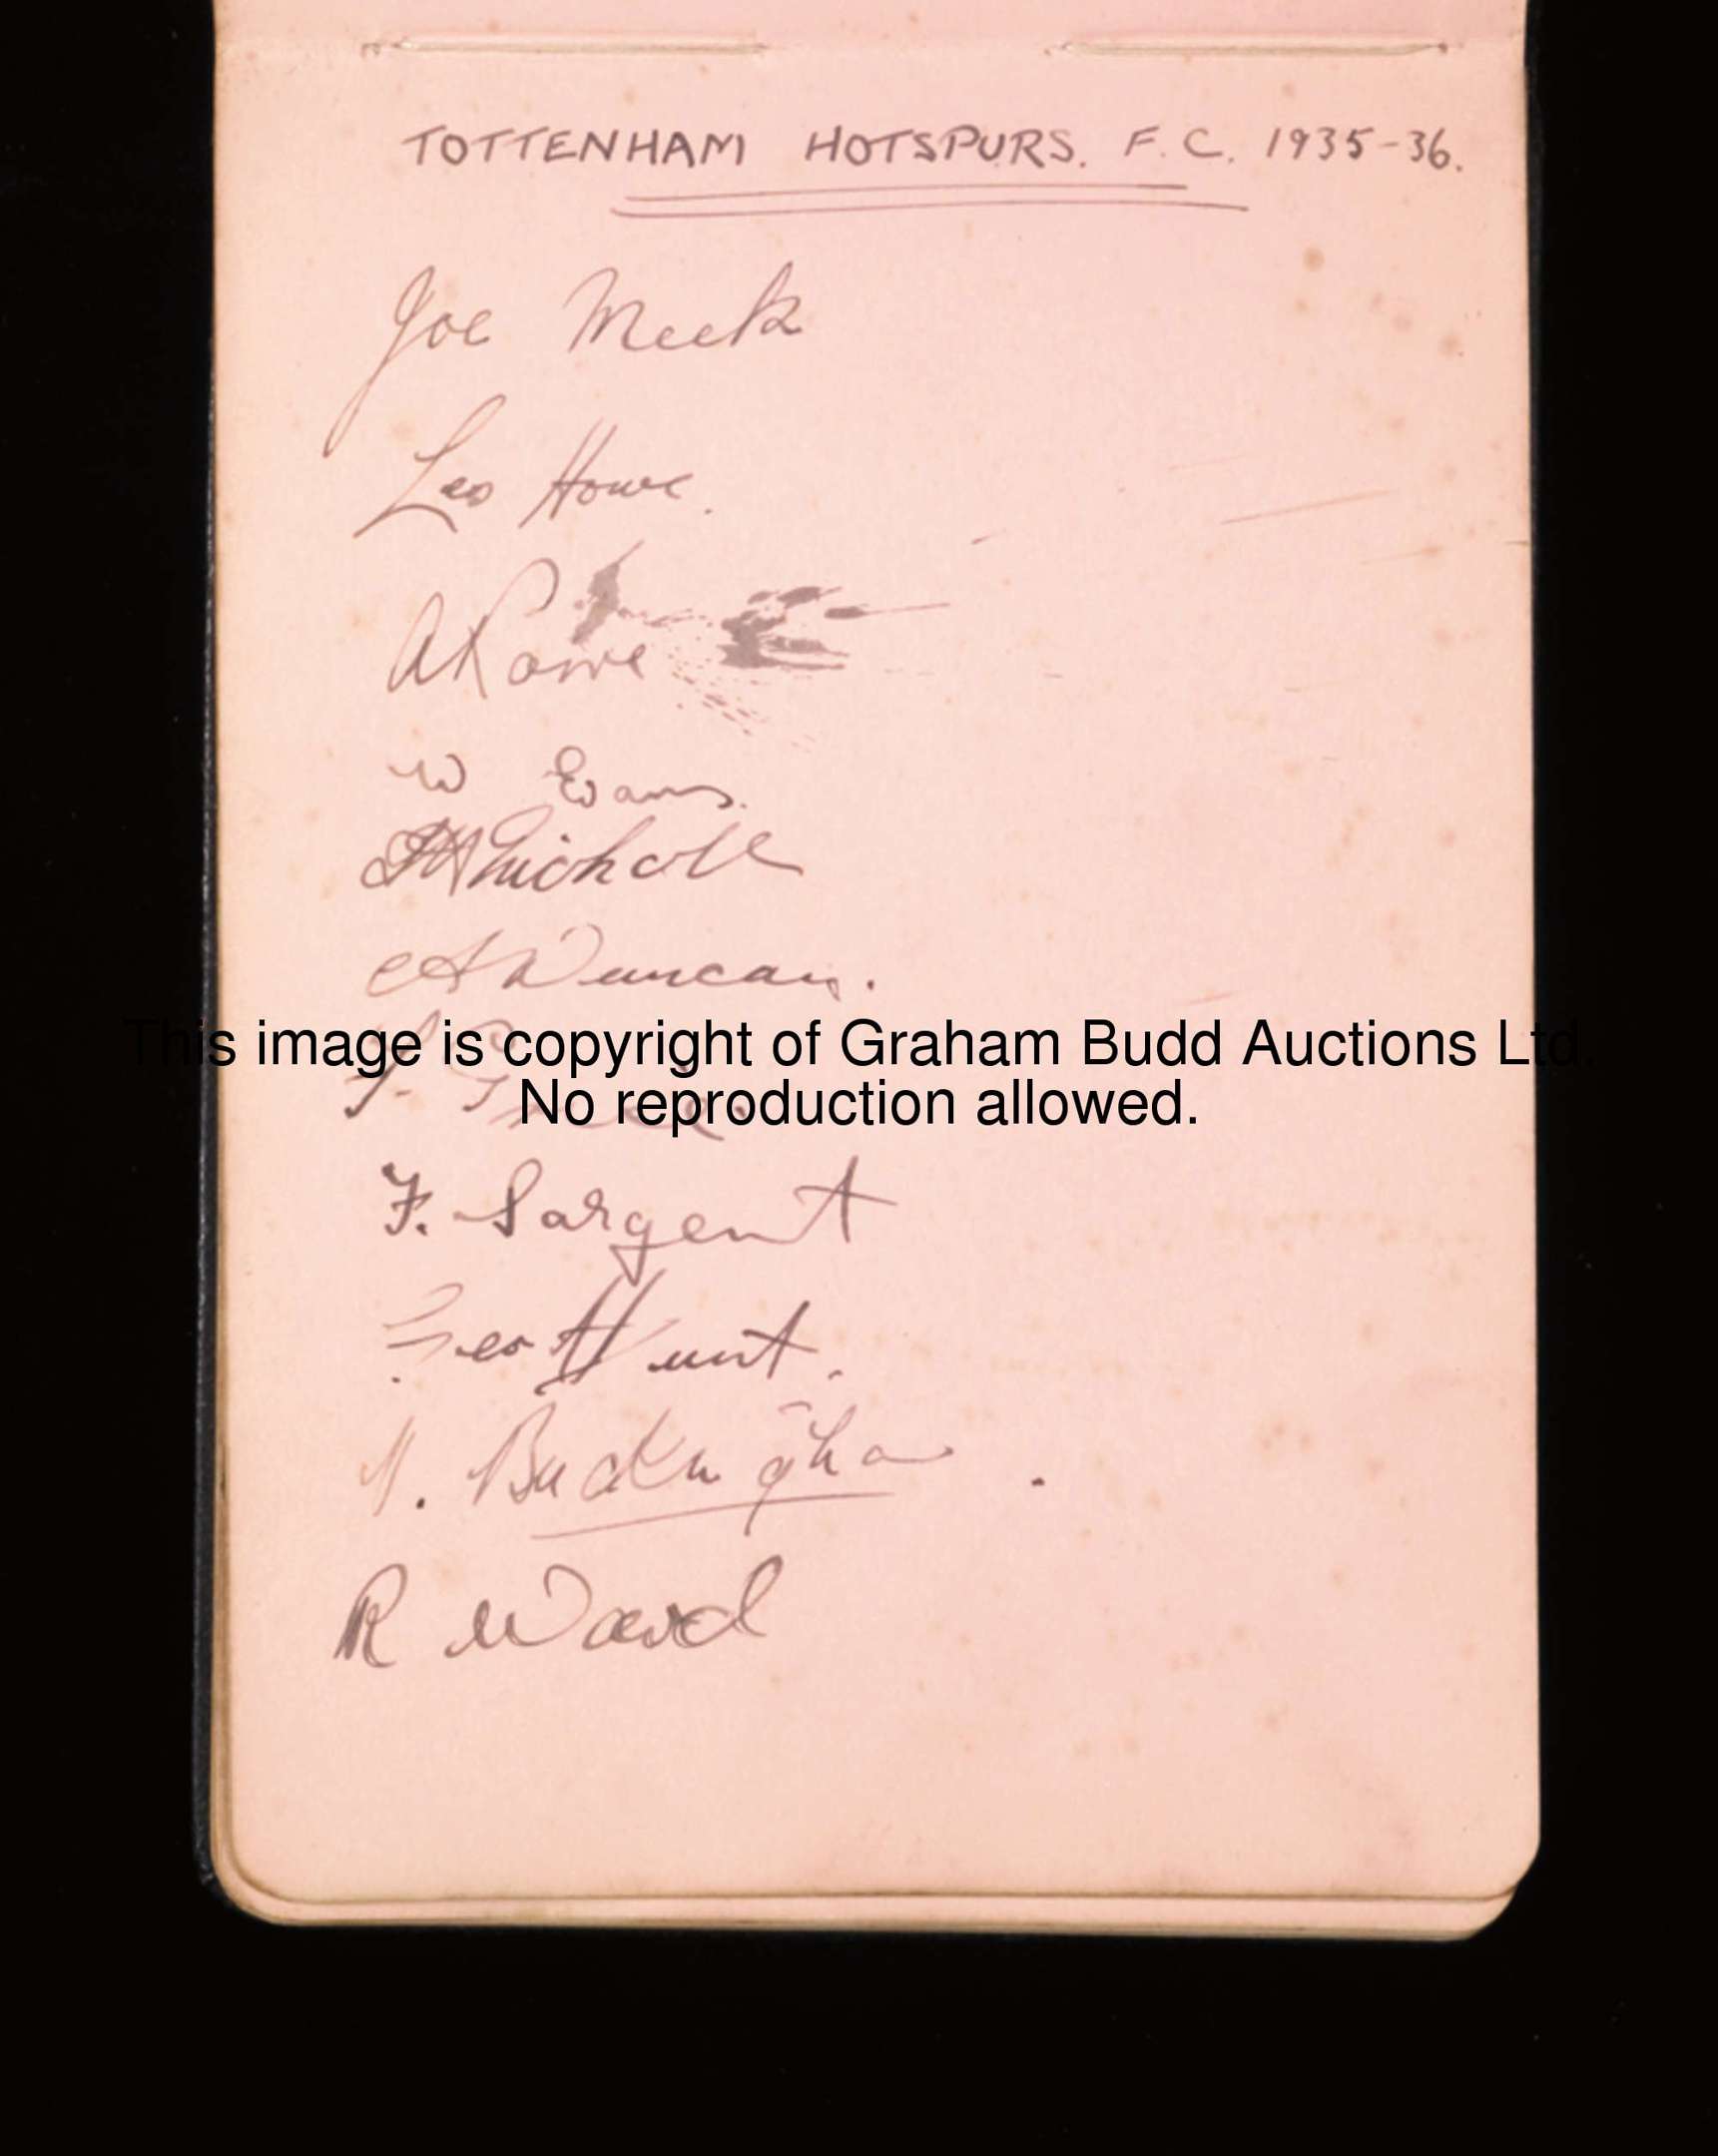 TOTTENHAM HOTSPURS. F.C. 1935-36.
Joe Meek
Les Howe.
A Rowe
W Evans.
Nicholl
A Duncan.
This image is copyright of Graham Budd Auctions Ltd.
No reproduction allowed.
F. Sargent
Geo Hunt.
V. Buckingham.
R Ward